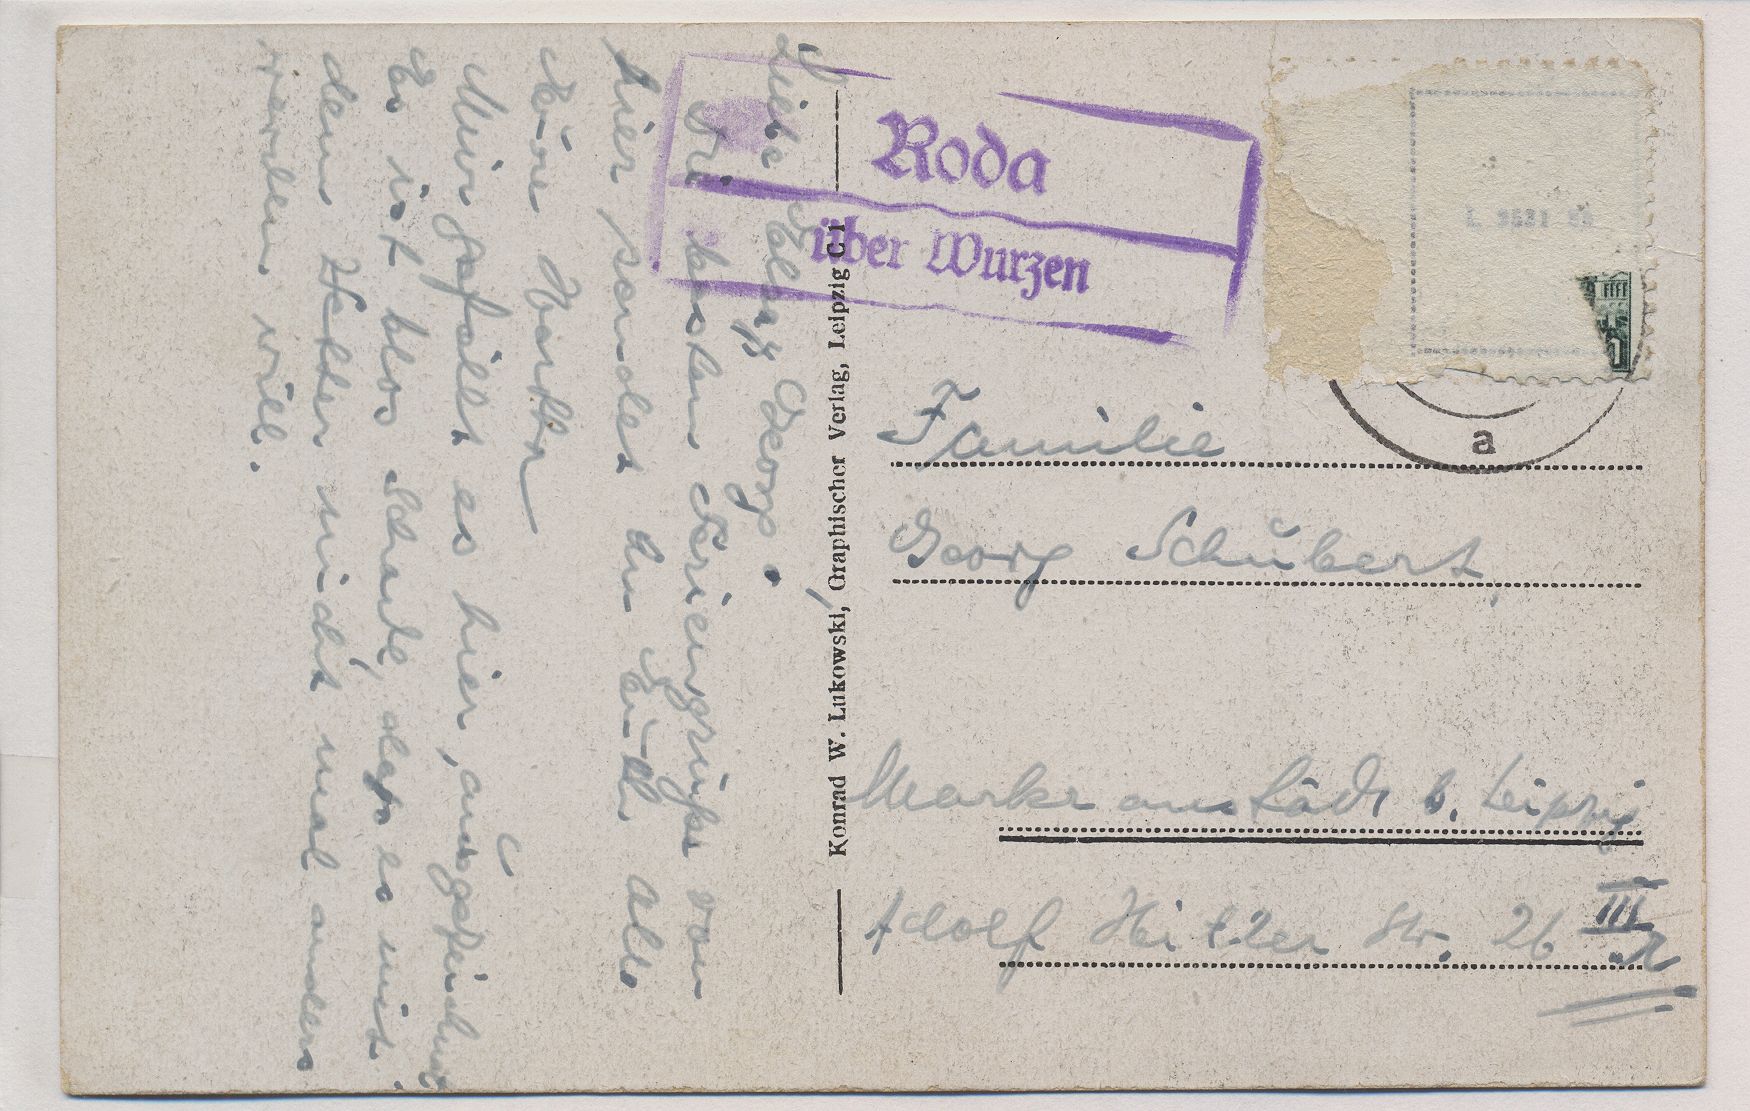 Roda
über Wurzen
Konrad W. Lukowski, Graphischer Verlag, Leipzig C 1
a
Familie
Georg Schubert,
Markranstädt b. Leipzig
Adolf Hitler Str. 26 III r
Georg.
Die besten Feriengrüße von
hier sendet an Euch alle
Eüer
Mir gefällt es hier ausgezeichnet
Es ist blos Schade, das es mit
dem Wetter nicht mal anders
werden will.